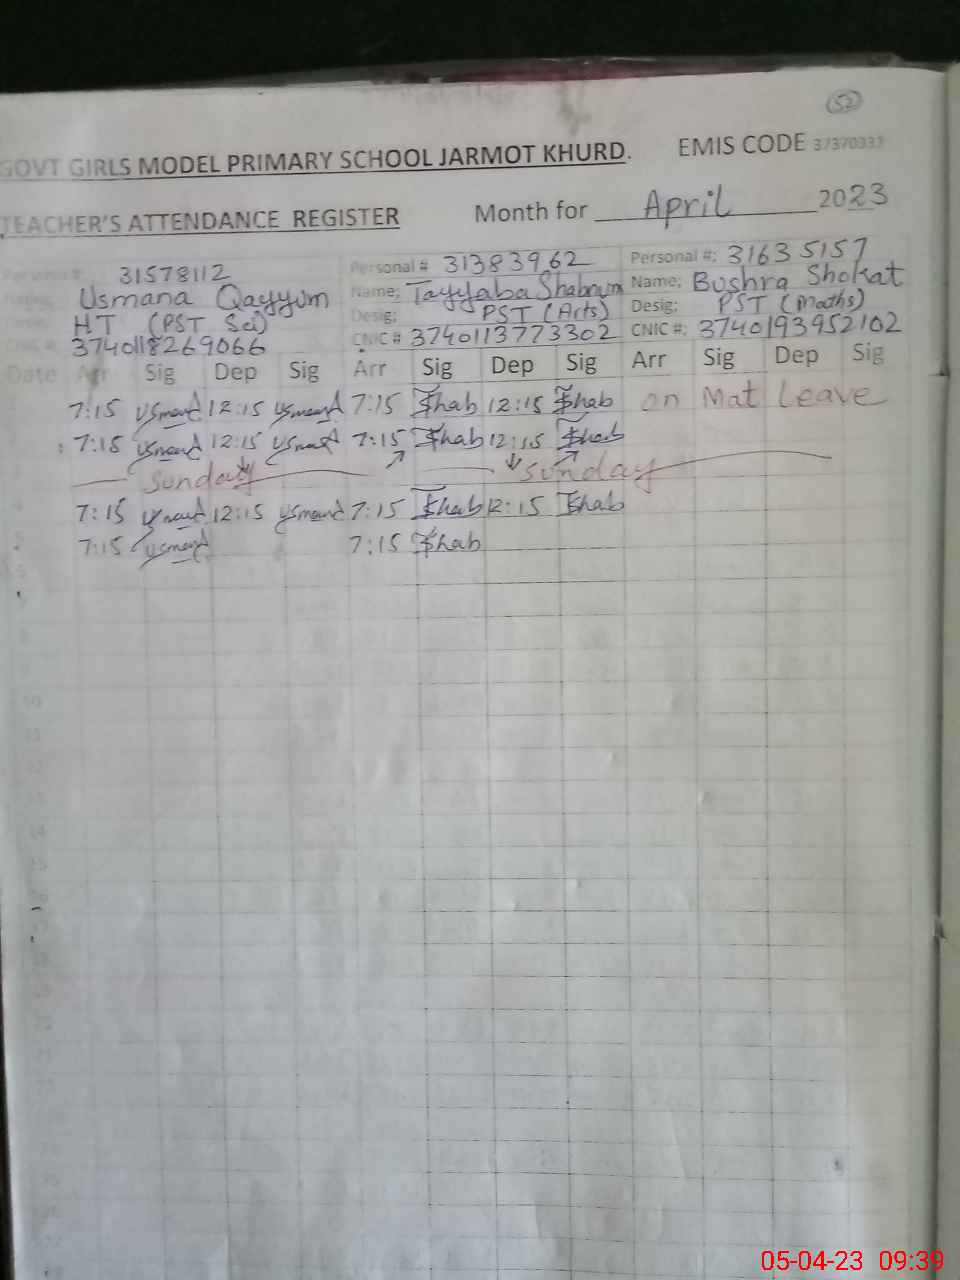 52
GOVT GIRLS MODEL PRIMARY SCHOOL JARMOT KHURD. EMIS CODE 37370337
TEACHER'S ATTENDANCE REGISTER Month for April 2023
Personal #: 31578112 Personal # 31383962 Personal #; 31635157
Name; Usmana Qayyum Name; Tayyaba Shabnum Name; Bushra Shokat
Desig; HT (PST Sci) Desig; PST (Arts) Desig; PST (Maths)
CNIC # 3740118269066 CNIC # 3740113773302 CNIC #; 3740193952102
Date Arr Sig Dep Sig Arr Sig Dep Sig Arr Sig Dep Sig
7:15 12:15 7:15 Shab 12:15 Shab on Mat Leave
7:15 12:15 7:15 Shab 12:15 Shab
Sunday Sunday
7:15 12:15 7:15 Shab 12:15 Shab
7:15 7:15 Shab
10
11
14
05-04-23 09:39